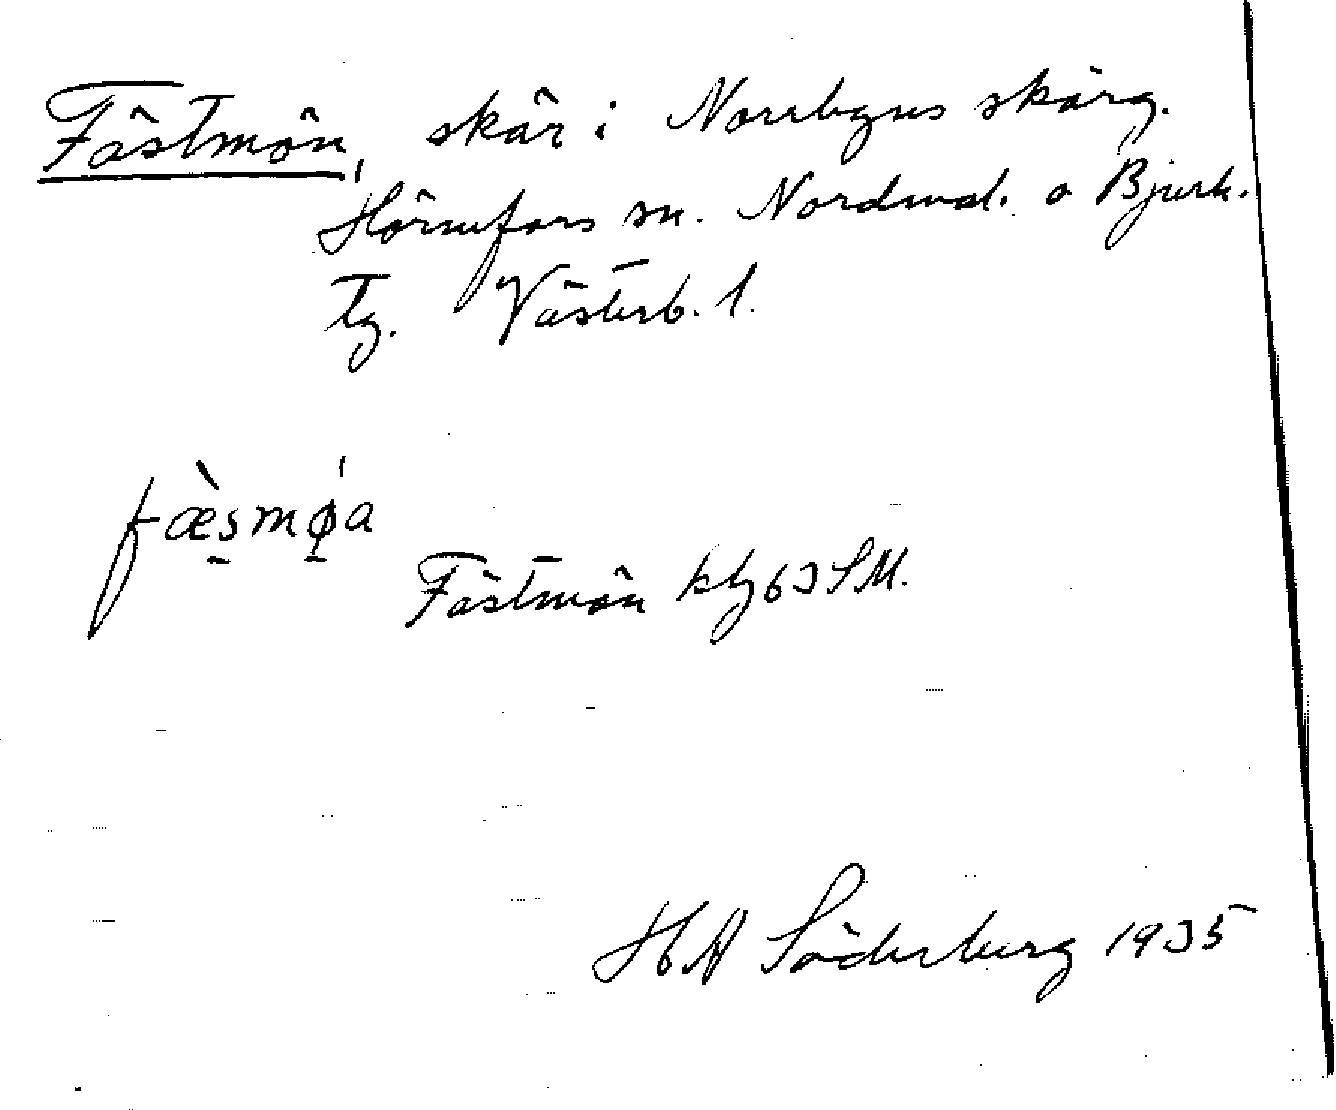 Fästmön, skär i Norrbyns skärg.
Hörnefors sn. Nordmal. o Bjurh.
tg. Västerb. l.
fæ̀s̱mǿ̱a
Fästmön kbl 63 SM.
H A Söderberg 1935